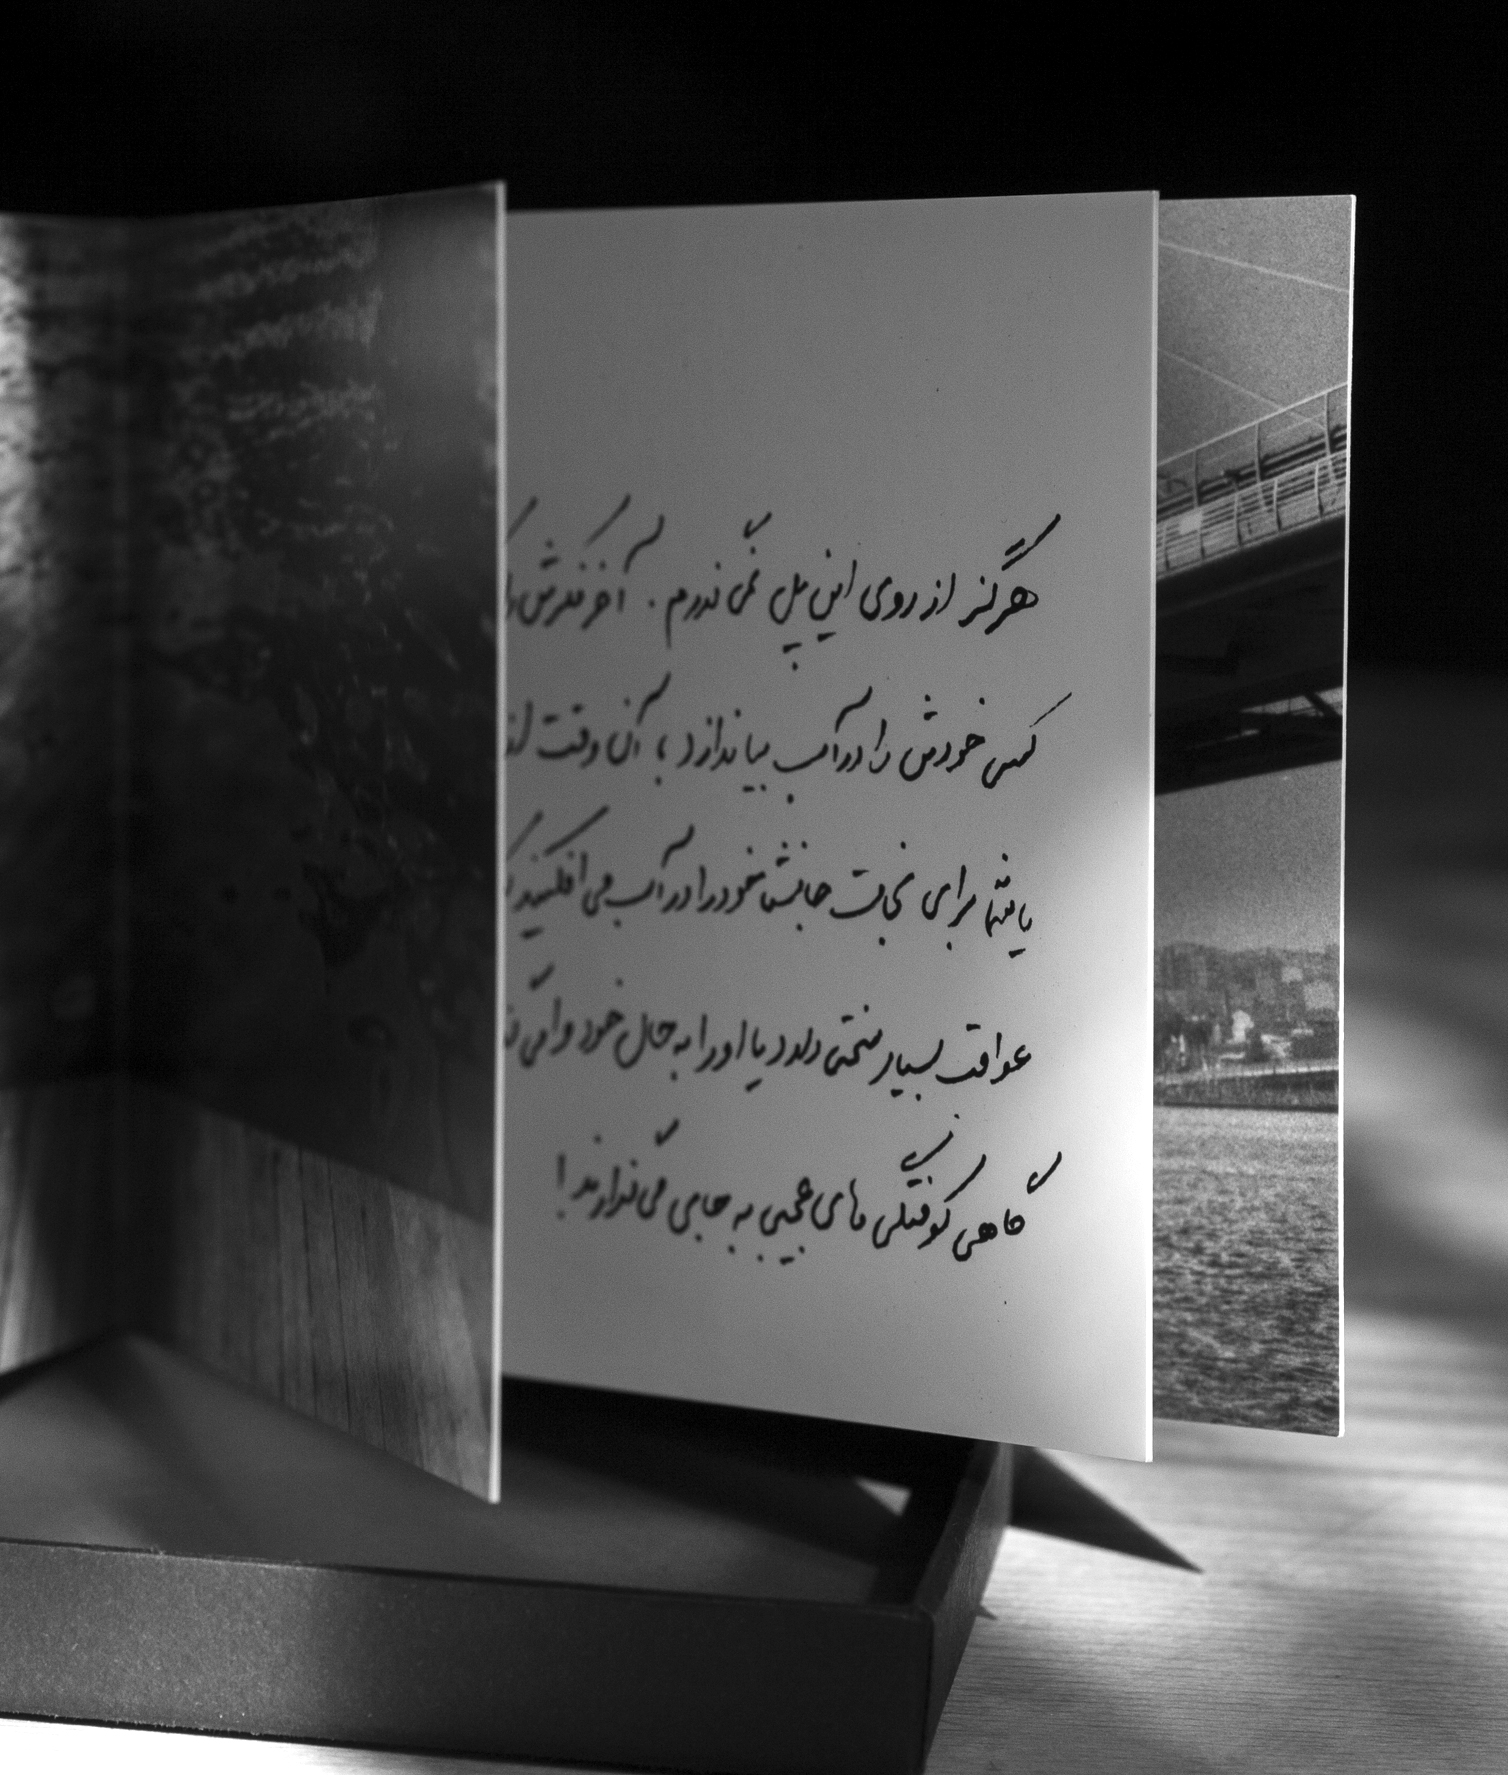 هرگز از روی این پل نمی‌گذرم. آخر فکرش را
کسی خودش را در آب بیاندازد، آن وقت از
یا شما برای نجات جانش خود را در آب می‌افکنید
عواقب بسیار سختی دارد یا او را به حال خود وا می
گاهی کوفتگی‌های عجیبی به جای می‌گذارند!